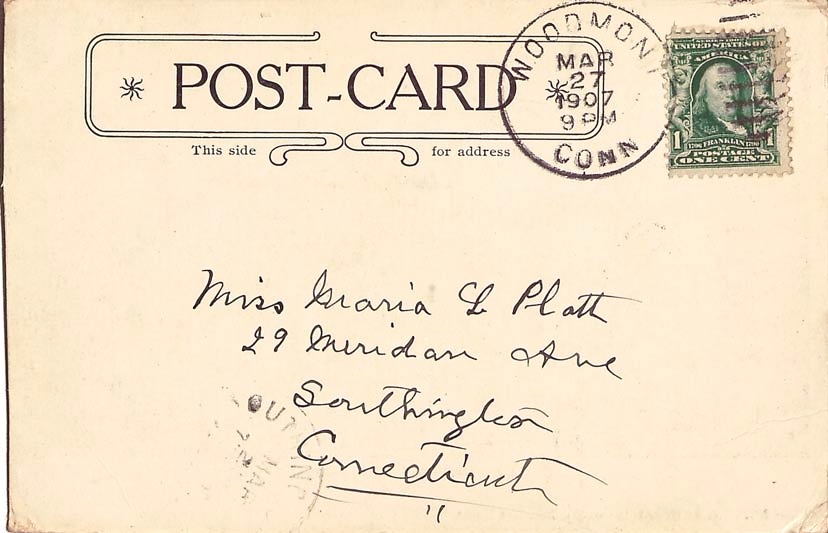 POST-CARD
This side for address
WOODMONT
MAR
27
1907
9 PM
CONN
SERIES 1902
UNITED STATES OF
AMERICA
1
FRANKLIN
POSTAGE
ONE CENT
Miss Maria L Platt
29 Meridan Ave
Southington
Connecticut
MAR